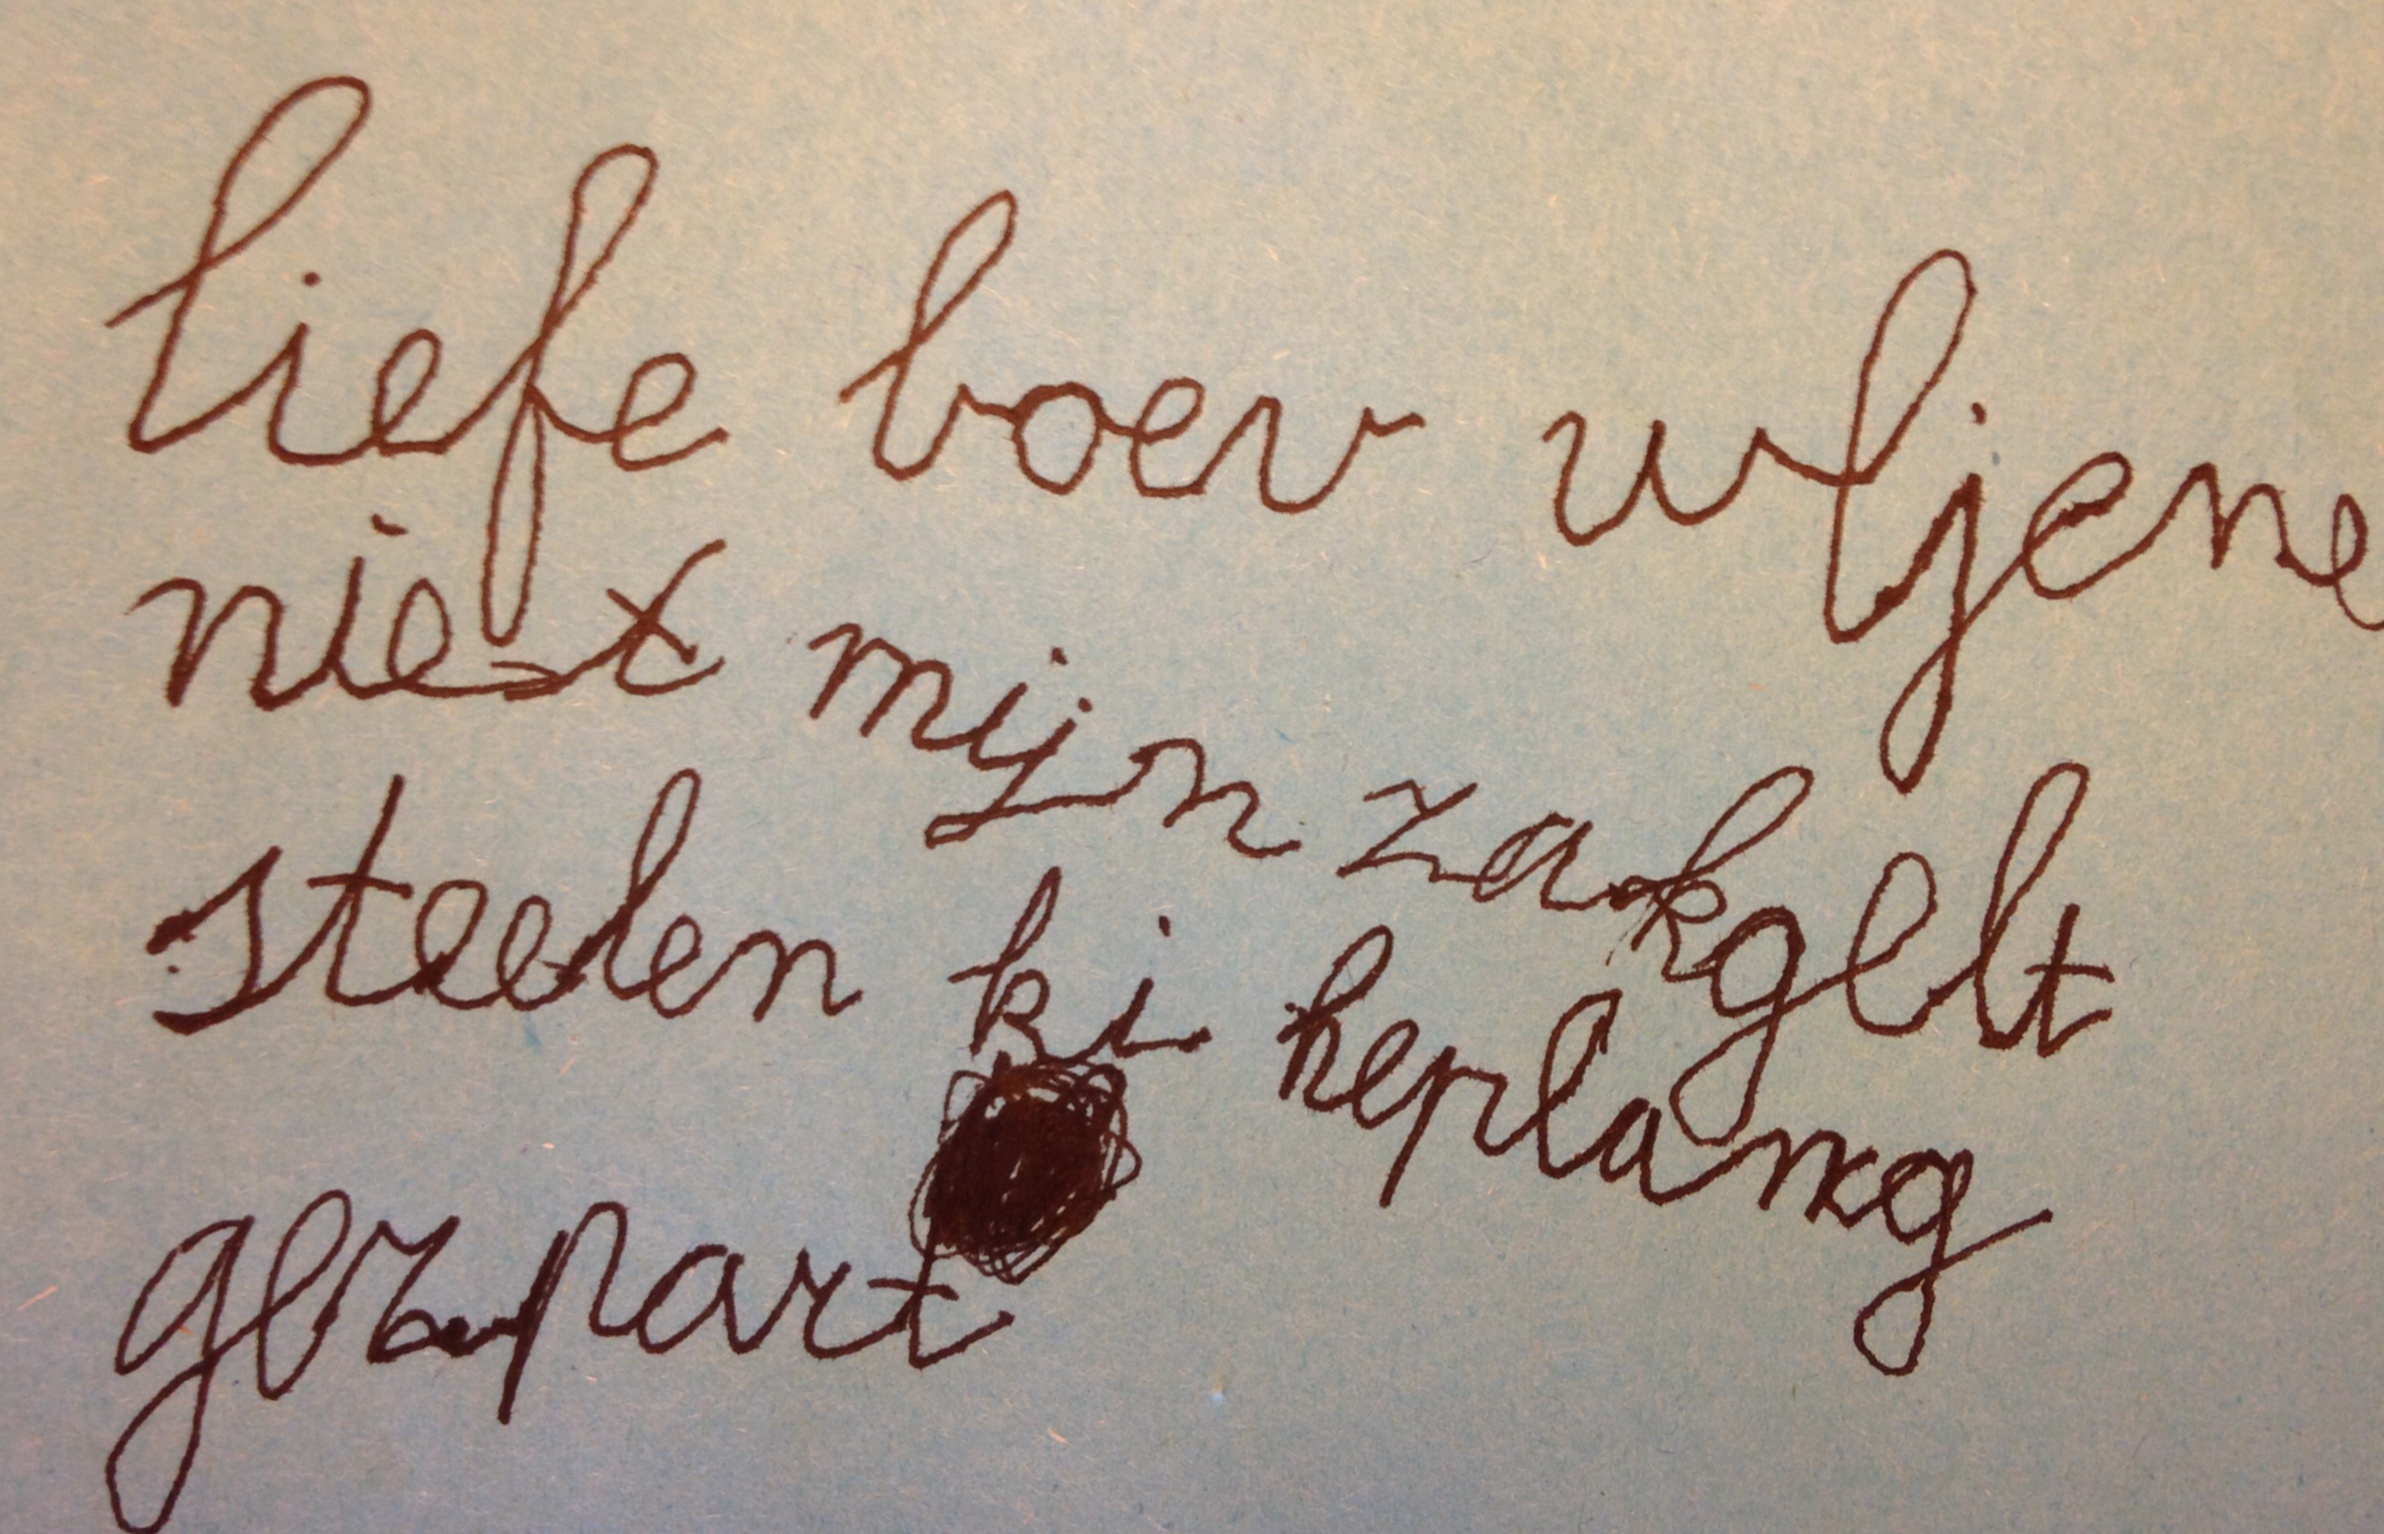 liefe boev wljene
niet mijn zakgelt
steelen ki heplang
gespart